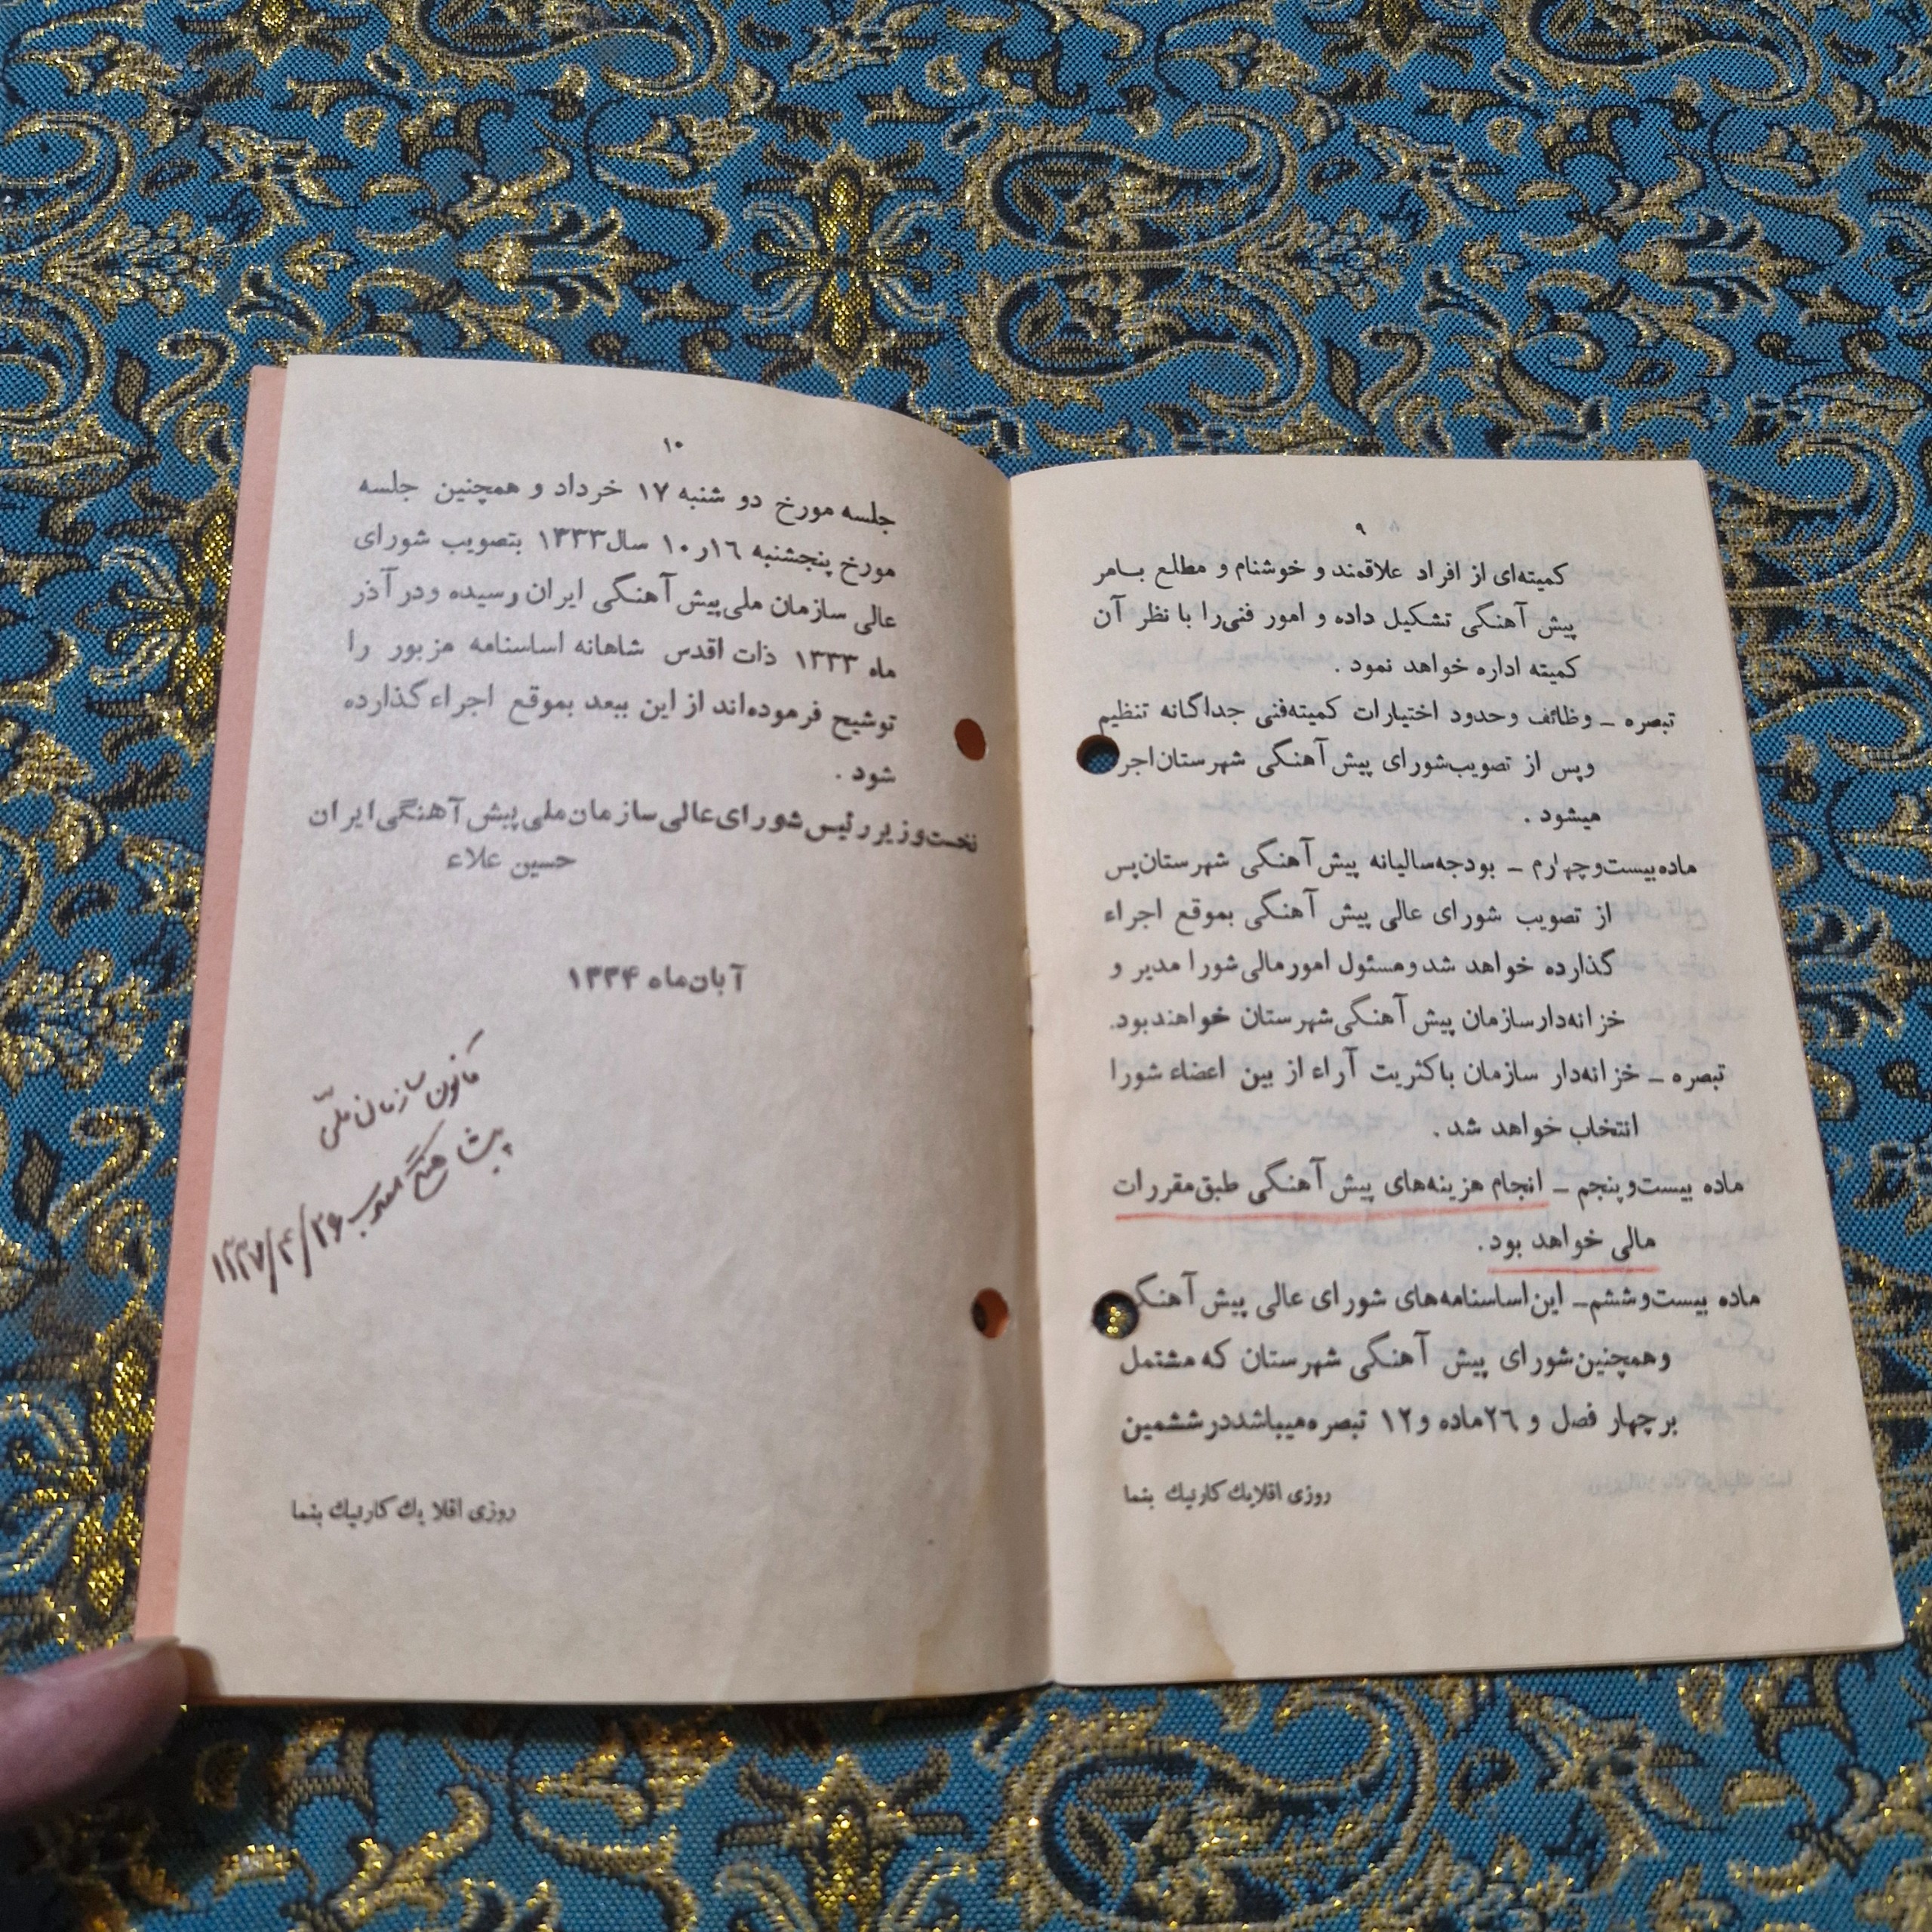 ۹
کمیته‌ای از افراد علاقمند و خوشنام و مطلع بامر
پیش آهنگی تشکیل داده و امور فنی‌را با نظر آن
کمیته اداره خواهد نمود .
تبصره ـ وظائف وحدود اختیارات کمیته‌فنی جداگانه تنظیم
وپس از تصویب‌شورای پیش‌آهنگی شهرستان‌اجر
میشود .
ماده‌بیست‌وچهارم ـ بودجه‌سالیانه پیش‌آهنگی شهرستان‌پس
از تصویب شورای عالی پیش آهنگی بموقع اجراء
گذارده خواهد شدومسئول امورمالی‌شورا مدیر و
خزانه‌دارسازمان پیش‌آهنگی‌شهرستان خواهندبود.
تبصره ـ خزانه‌دار سازمان باکثریت آراء از بین اعضاء شورا
انتخاب خواهد شد.
ماده بیست‌وپنجم ـ انجام هزینه‌های پیش‌آهنگی طبق‌مقررات
مالی خواهد بود.
ماده بیست‌وششم‌ـ این‌اساسنامه‌های شورای عالی پیش‌آهنگ
وهمچنین‌شورای پیش آهنگی شهرستان که مشتمل
برچهار فصل و ۲۶ماده و۱۲ تبصره‌میباشددرششمین
روزی اقلایك کارنیك بنما
۱۰
جلسه مورخ دو شنبه ۱۷ خرداد و همچنین جلسه
مورخ پنجشنبه ۱۶ر۱۰ سال۱۳۳۳ بتصویب شورای
عالی سازمان ملی‌پیش‌آهنگی ایران رسیده ودرآذر
ماه ۱۳۳۳ ذات اقدس شاهانه اساسنامه مزبور را
توشیح فرموده‌اند از این ببعد بموقع اجراءگذارده
شود .
نخست‌وزیررئیس‌شورای‌عالی‌سازمان‌ملی‌پیش‌آهنگی‌ایران
حسین علاء
آبان‌ماه ۱۳۳۴
کانون سازمان ملّی
پیش‌آهنگی
۱۳۳۷/۴/۲۶
روزی اقلا یك کارنیك بنما